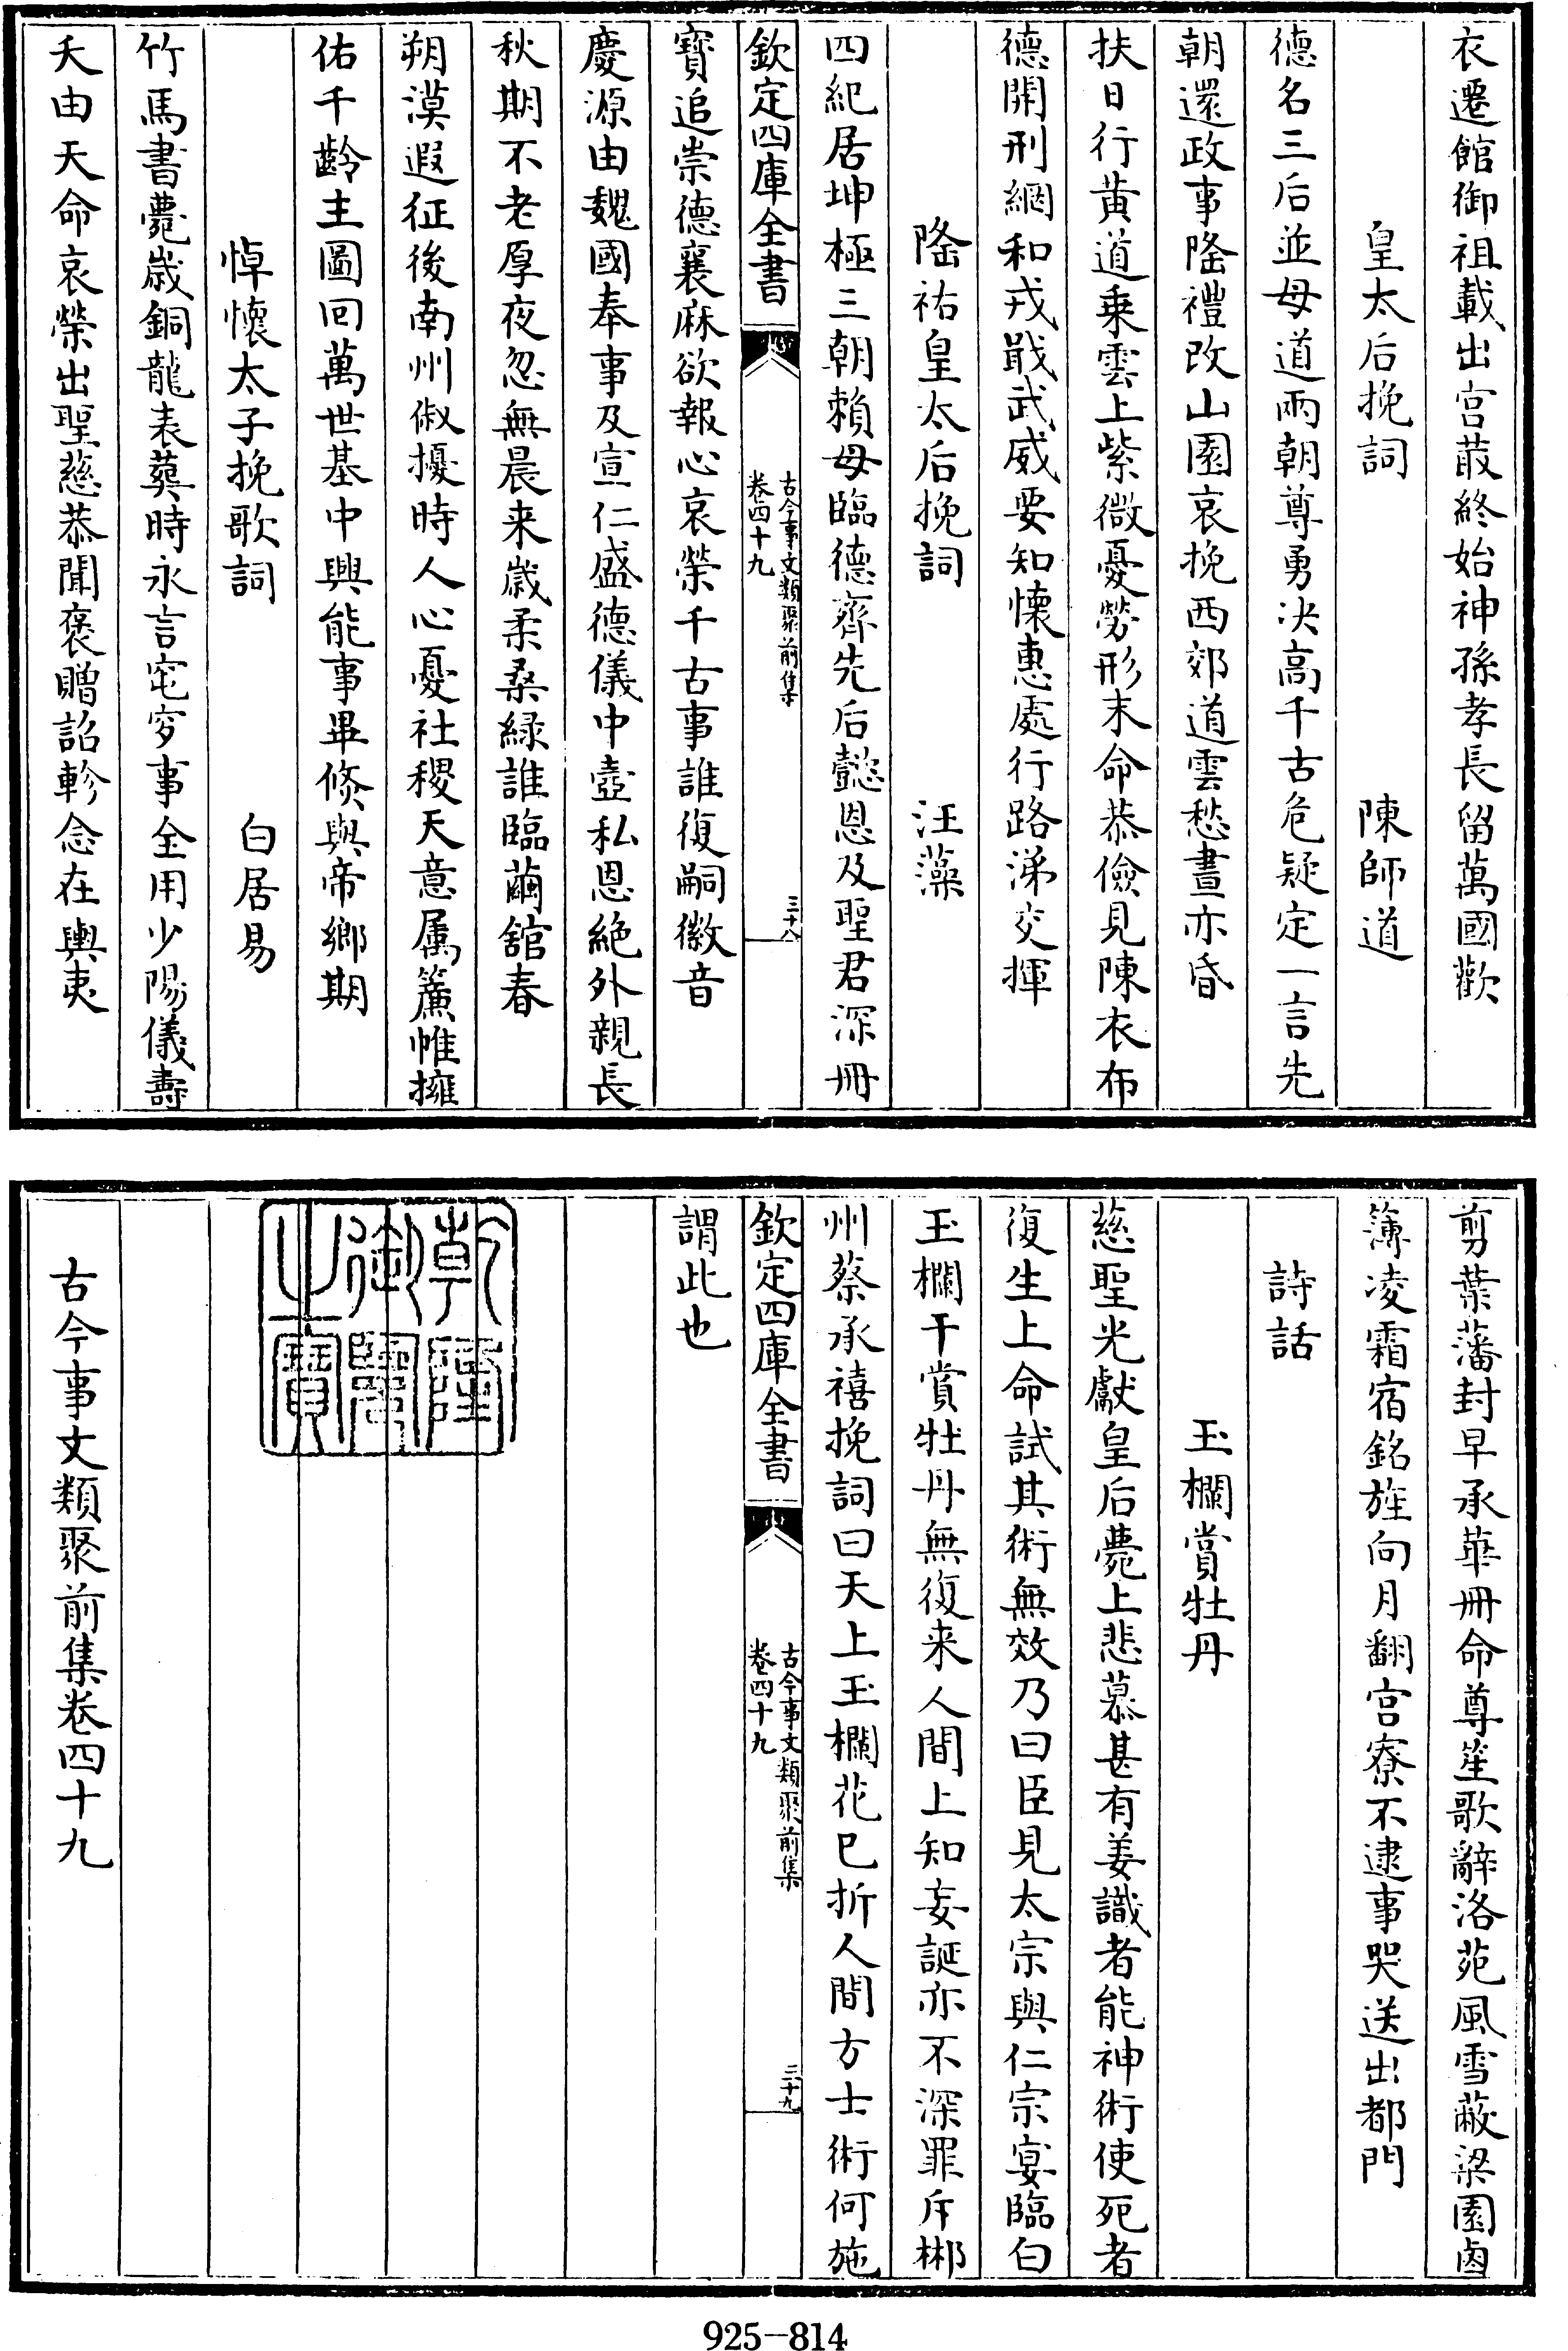 衣遷館御祖載出宫菆終始神孫孝長留萬國歡
皇太后挽詞　陳師道
德名三后並母道兩朝尊勇决高千古危疑定一言先
朝還政事隆禮改山園哀挽西郊道雲愁晝亦昏
扶日行黄道乗雲上紫微憂勞形末命恭儉見陳衣布
德開刑網和戎戢武威要知懐惠處行路涕交揮
隆祐皇太后挽詞　汪藻
四紀居坤極三朝賴母臨德齊先后懿恩及聖君深冊
欽定四庫全書
古今事文類聚前集
卷四十九
三十八
寶追崇德襄麻欲報心哀榮千古事誰復嗣徽音
慶源由魏國奉事及宣仁盛德儀中壼私恩絶外親長
秋期不老厚夜忽無晨来嵗柔桑緑誰臨繭舘春
朔漠遐征後南州俶擾時人心憂社稷天意屬簾帷擁
佑千齡主圖回萬世基中興能事畢倐與帝鄉期
悼懐太子挽歌詞　白居易
竹馬書薨嵗銅龍表葬時永言窀穸事全用少陽儀壽
夭由天命哀榮出聖慈恭聞褒贈詔軫念在輿夷
剪葉藩封早承華冊命尊笙歌辭洛苑風雪蔽梁園鹵
簿凌霜宿銘旌向月翻宫寮不逮事哭送出都門
詩話
玉欄賞牡丹
慈聖光獻皇后薨上悲慕甚有姜識者能神術使死者
復生上命試其術無效乃曰臣見太宗與仁宗宴臨白
玉欄干賞牡丹無復来人間上知妄誕亦不深罪斥郴
州蔡承禧挽詞曰天上玉欄花已折人間方士術何施
欽定四庫全書
古今事文類聚前集
卷四十九
三十九
謂此也
乾隆御覽之寶
古今事文類聚前集卷四十九
925-814